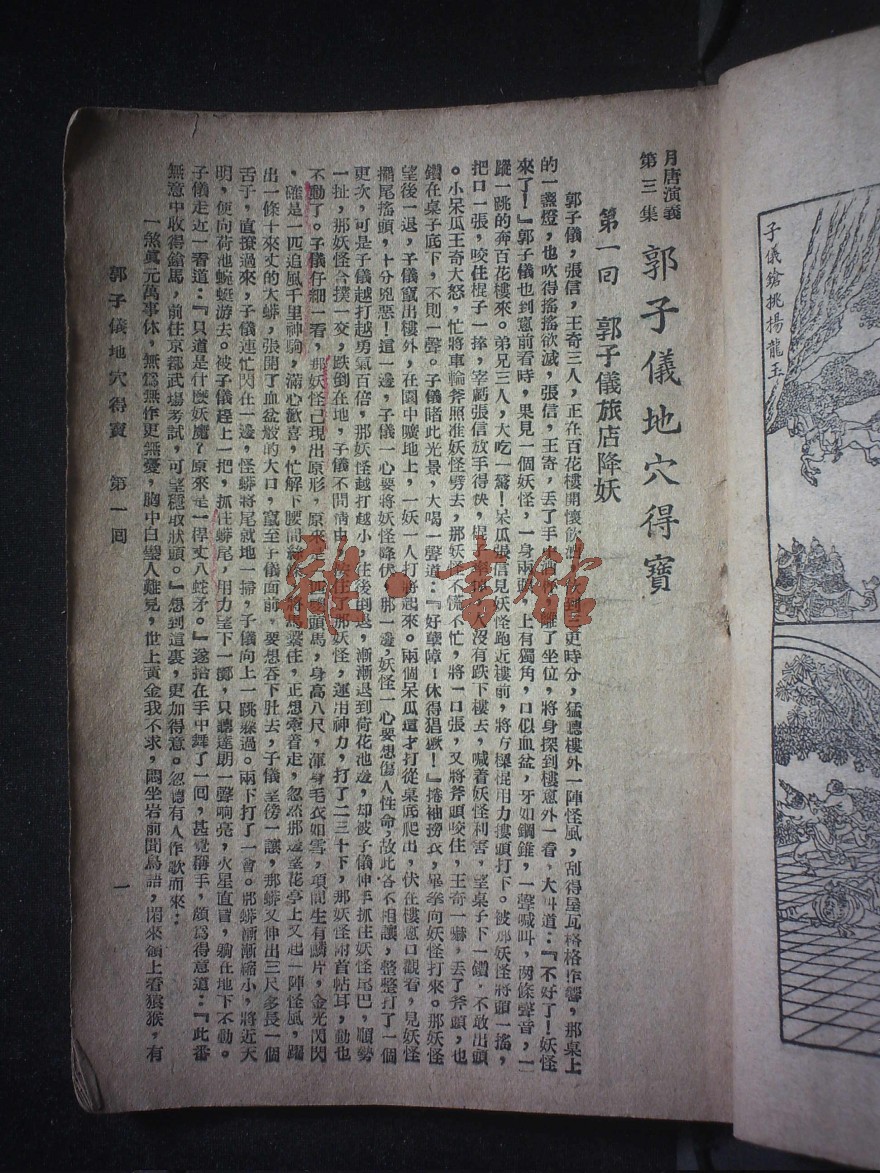 月唐演義
第三集
郭子儀地穴得寶
第一回　郭子儀旅店降妖
郭子儀，張信，王奇三人，正在百花樓開懷飲酒，飲到三更時分，猛聽樓外一陣怪風，刮得屋瓦格格作響，那桌上
的一盞燈，也吹得搖搖欲滅，張信，王奇，丟了手中酒杯，離了坐位，將身探到樓窻外一看，大叫道：『不好了！妖怪
來了！』郭子儀也到窻前看時，果見一個妖怪，一身兩頭，上有獨角，口似血盆，牙如鋼錐，一聲喊叫，兩條聲音，一
蹤一跳的奔百花樓來。弟兄三人，大吃一驚！呆瓜張信見妖怪跑近樓前，將方樑棍用力摟頭打下。被那妖怪將頭一搖，
把口一張，咬住棍子一摔，宰虧張信放手得快，棍子奪掉，人沒有跌下樓去，喊着妖怪利害，望桌子下一鑽，不敢出頭
。小呆瓜王奇大怒，忙將車輪斧照准妖怪劈去，那妖怪不慌不忙，將一口張，又將斧頭咬住，王奇一嚇，丟了斧頭，也
鑽在桌子底下，不則一聲。子儀睹此光景，大喝一聲道：『好孽障！休得猖獗！』捲袖撈衣，舉拳向妖怪打來。那妖怪
望後一退，子儀竄出樓外，在園中曠地上，一妖一人打將起來。兩個呆瓜這才打從桌底爬出，伏在樓窻口觀看，見妖怪
擺尾搖頭，十分兇惡！這一邊，子儀一心要將妖怪降伏，那一邊，妖怪一心要想傷人性命，故此各不相讓，整整打了一個
更次，可是子儀越打越勇氣百倍，那妖怪越打越小，往後倒退，漸漸退到荷花池邊，却被子儀伸手抓住妖怪尾巴，順勢
一扯，那妖怪合撲一交，跌倒在地，子儀不問情由，按住了那妖怪，運用神力，打了二三十下，那妖怪附首帖耳，動也
不動了。子儀仔細一看，那妖怪已現出原形，原來是一匹獨頭馬，身高八尺，渾身毛衣如雪，項間生有鱗片，金光閃閃
，確是一匹追風千里神駒，滿心歡喜，忙解下腰間絲絛，將馬繫住，正想牽着走，忽然那邊望花亭上又起一陣怪風，躥
出一條十來丈的大蟒，張開了血盆般的大口，竄至子儀面前，要想吞下肚去，子儀望傍一讓，那蟒又伸出三尺多長一個
舌子，直撩過來，子儀連忙閃在一邊，怪蟒將尾就地一掃，子儀向上一跳躲過。兩下打了一會。那蟒漸漸縮小，將近天
明，便向荷池蜿蜒游去。被子儀趕上一把，抓住蟒尾，用力望下一擲，只聽達朗一聲响亮，火星直冒，躺在地下不動。
子儀走近一看道：『只道是什麽妖魔？原來是一桿丈八蛇矛。』遂拾在手中舞了一回，甚覺稱手，頗爲得意道：『此番
無意中收得鎗馬，前往京都武塲考試，可望穩取狀頭。』想到這裏，更加得意。忽聽有人作歌而來：
一煞眞元萬事休，無爲無作更無憂，胸中白璧人難見，世上黃金我不求，悶坐岩前聞鳥語，閒來嶺上看猿猴，有
郭子儀地穴得寶　第一回
一
子儀鎗挑揚龍王
雜·書館